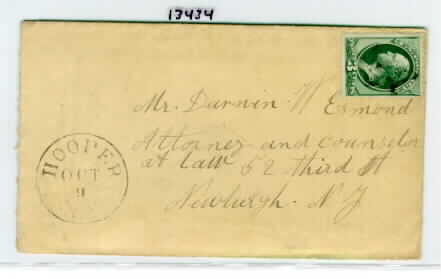 13434
Mr. Darwin W Esmond
Attorney and counselor
at law 52 third St
Newburgh. N. Y.
HOOPER
OCT
9